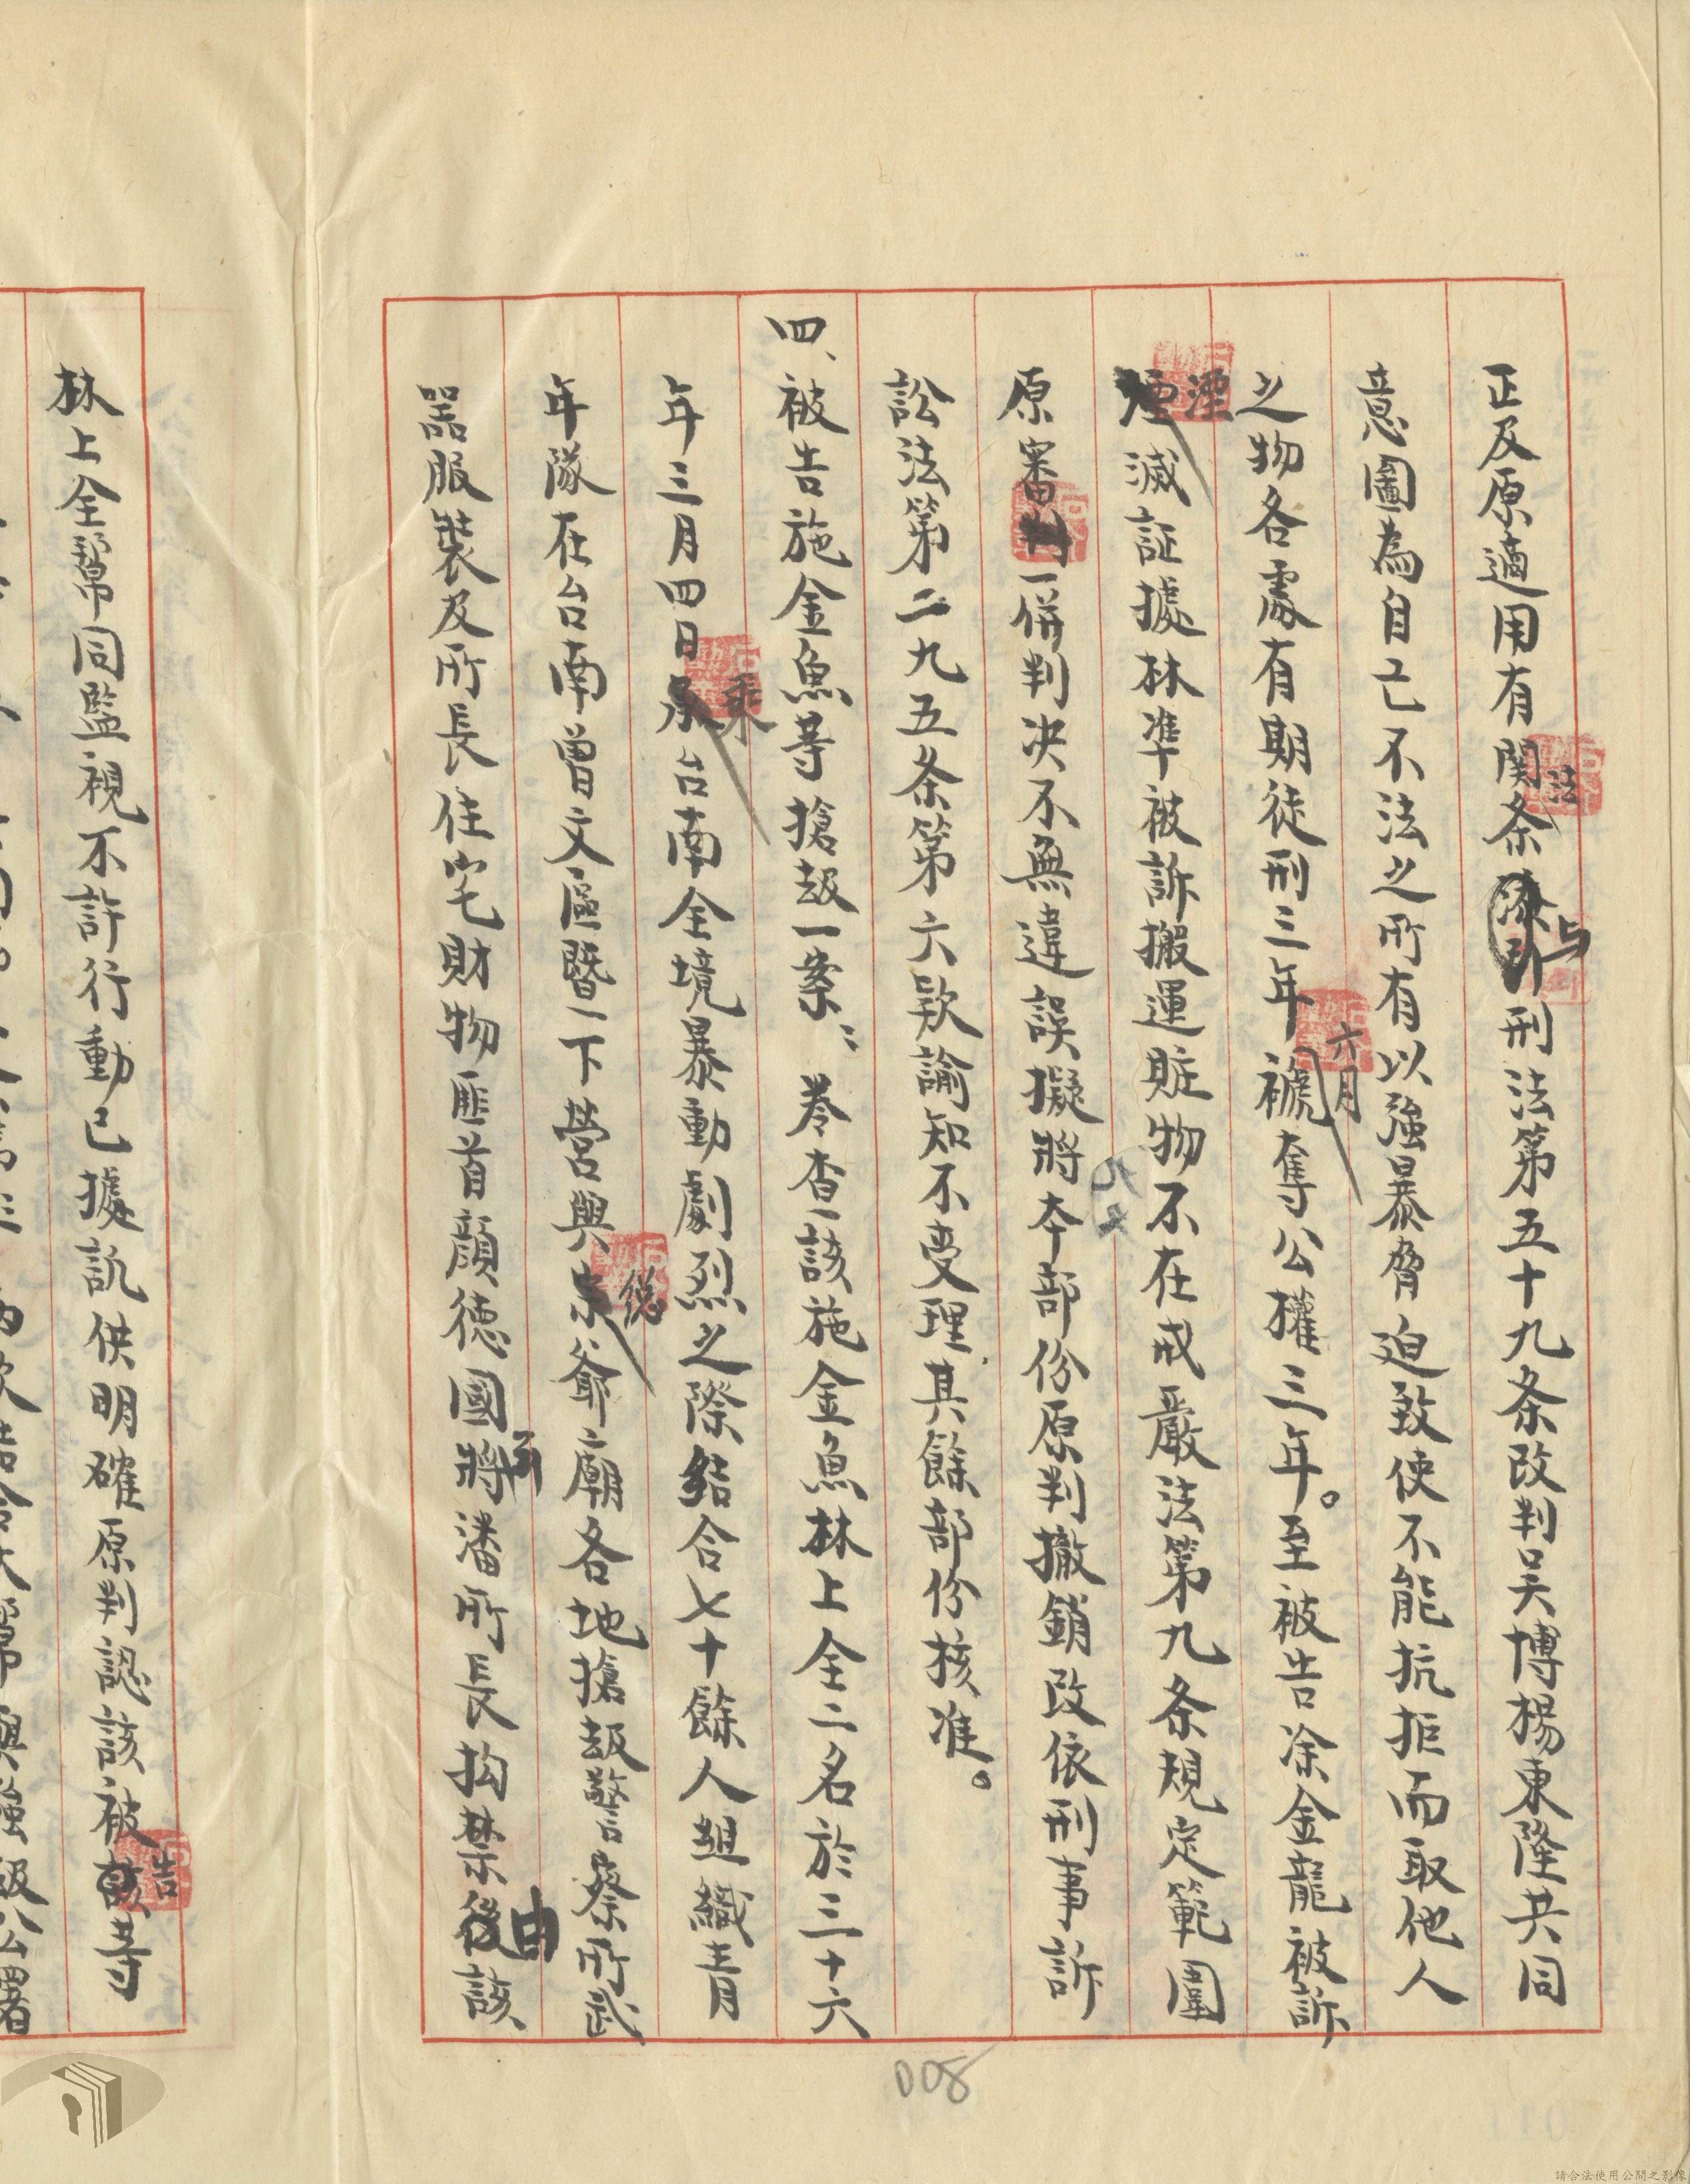 正及原適用有関法条与刑法第五十九条改判吴博楊東隆共同
意圖為自己不法之所有以強暴脅迫致使不能抗拒而取他人
之物各處有期徒刑三年六月褫奪公權三年。至被告凃金龍被訴
湮滅証據林準被訴搬運賍物不在戒嚴法第九条規定範圍
原審一併判决不無違誤擬將本部份原判撤銷改依刑事訴
訟法第二九五条第六欵諭知不受理其餘部份核准。
四、被告施金魚等搶刼一案：莟查該施金魚林上全二名於三十六
年三月四日乘台南全境暴動劇烈之際結合七十餘人組織青
年隊在台南曾文區暨下營與總爺廟各地搶刼警察所武
器服裝及所長住宅財物匪首顏德國將潘所長拘禁後由該
林上全幫同監視不許行動已據訊供明確原判認該被告等
008
請合法使用公開之影像